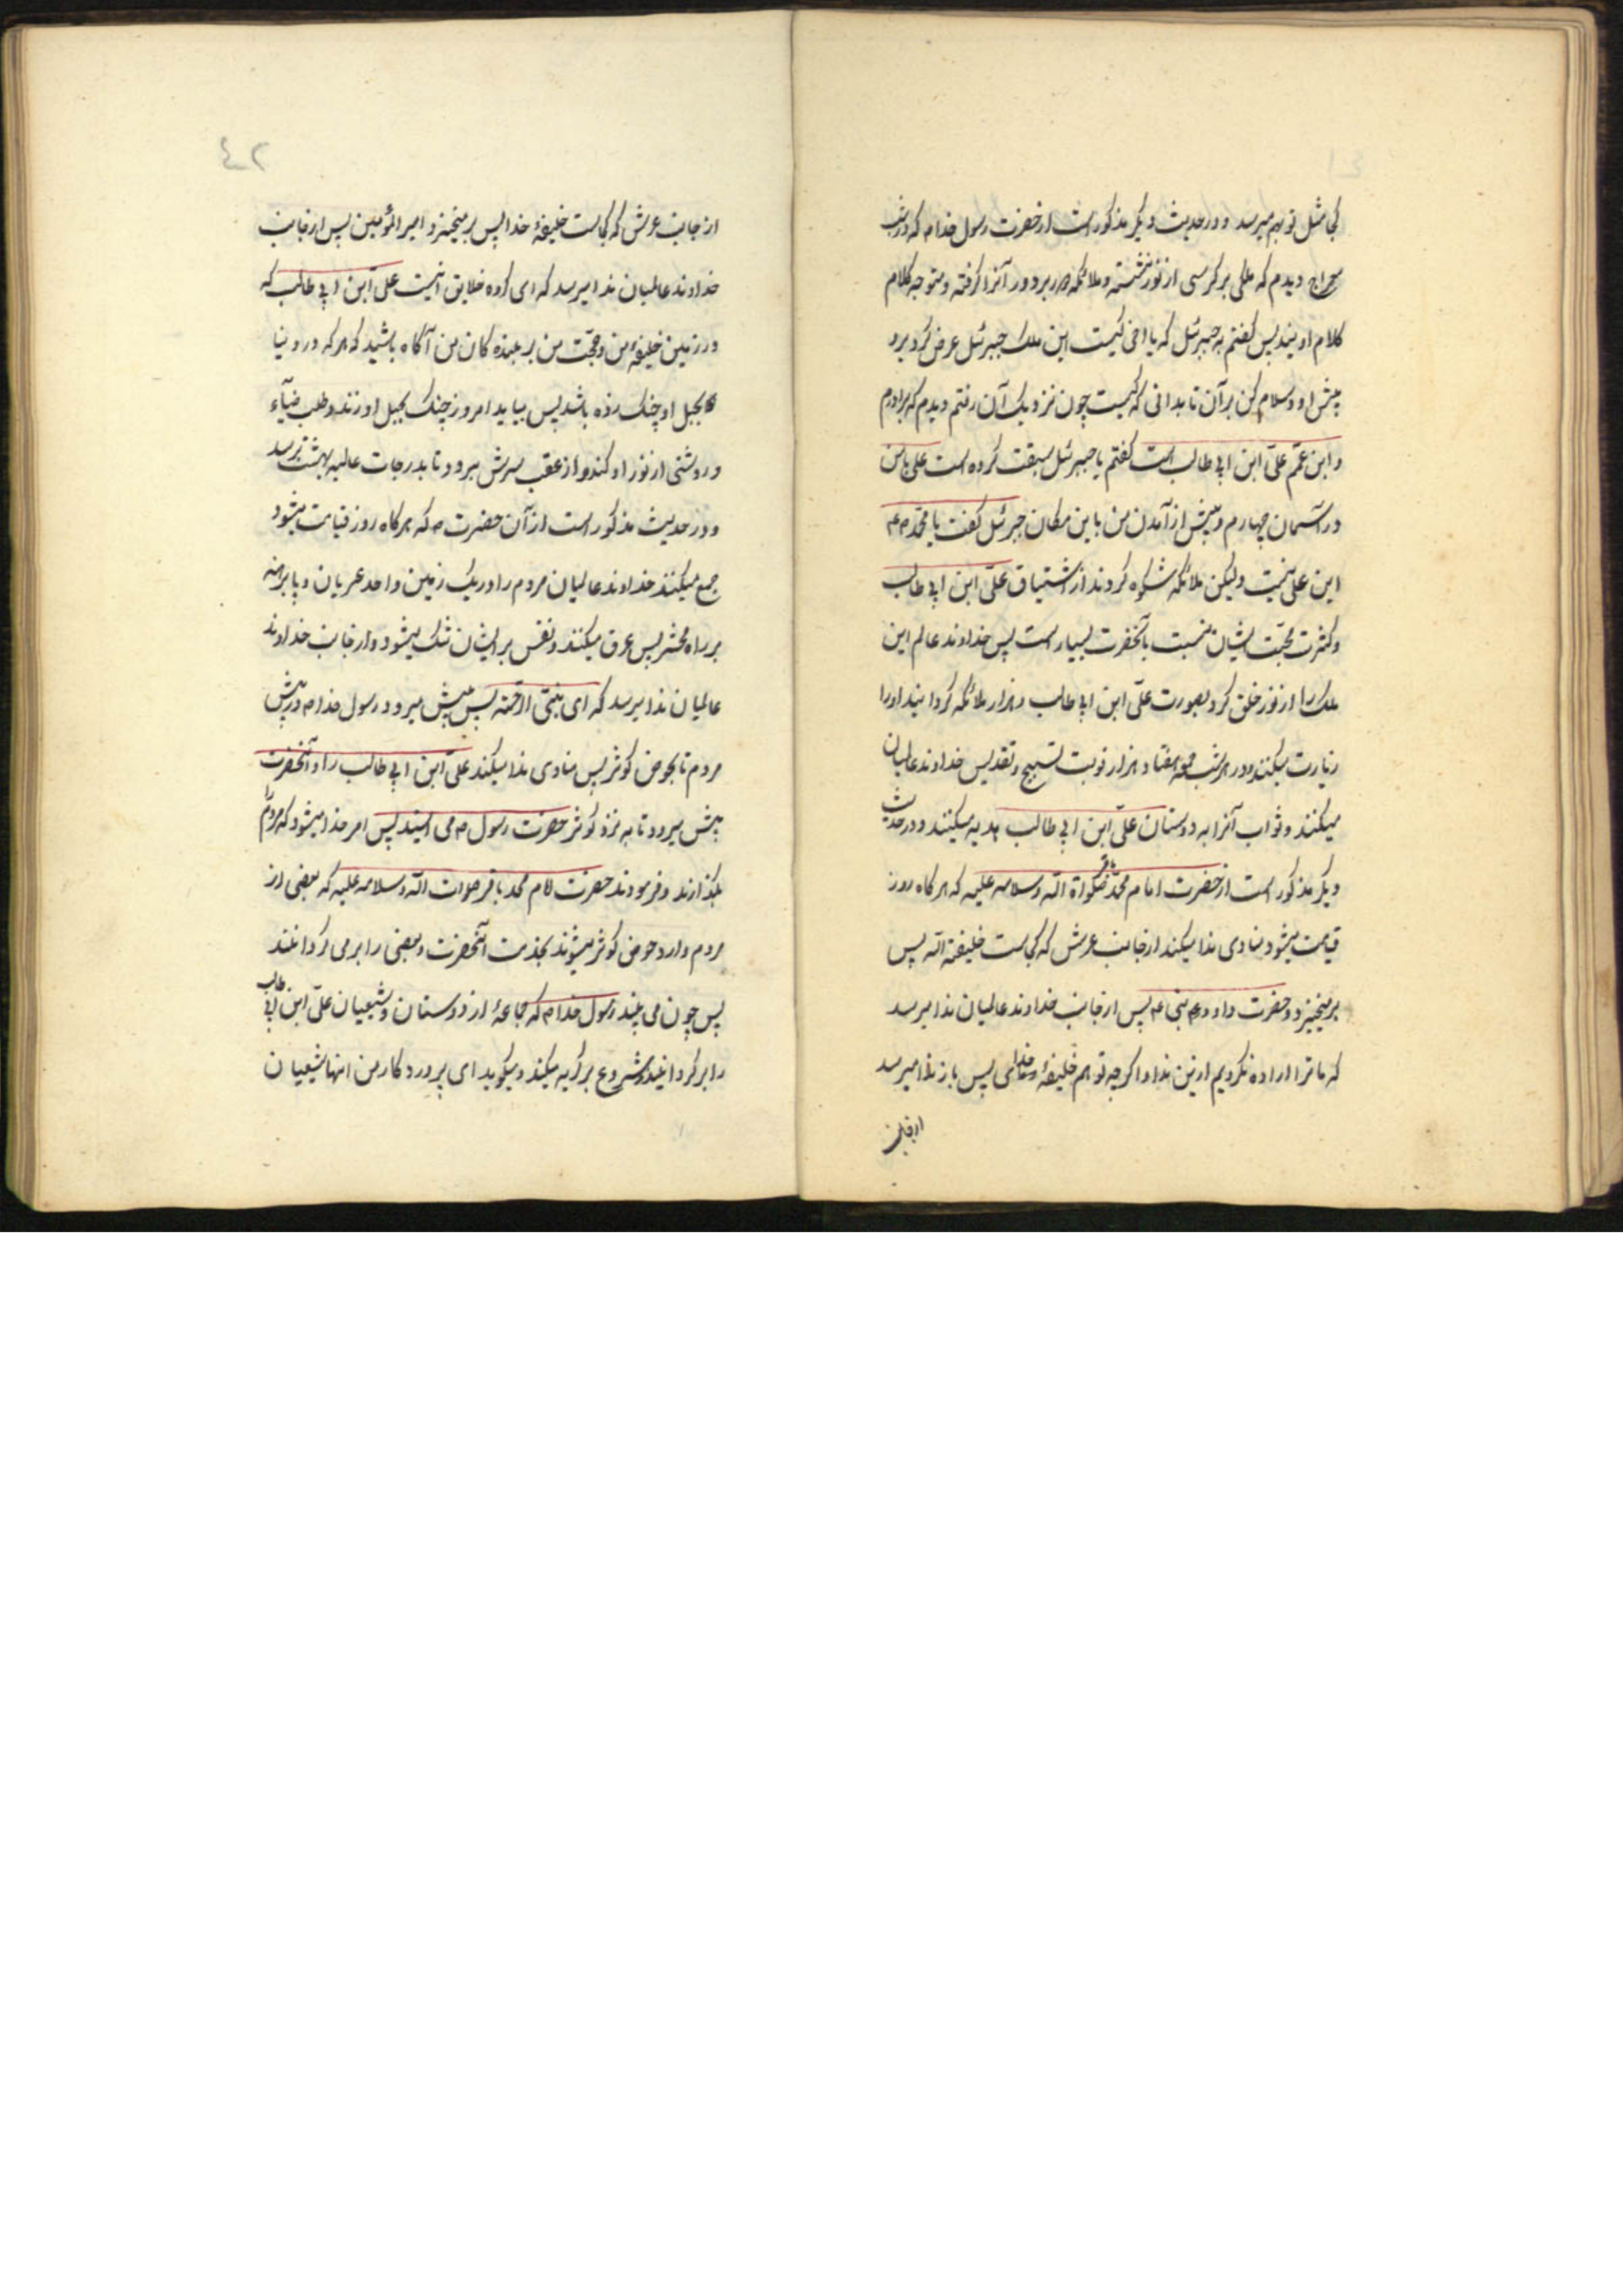 کجا مثل تو بهم میرسد و در حدیث دیگر مذکور است از حضرت رسول خدا ص که در شب
معراج دیدم که ملکی بر کرسی از نور نشسته و ملائکه در بر دور آنرا گرفته و متوجه کلام
کلام اویند پس گفتم به جبرئیل که یا اخی کیست این ملک جبرئیل عرض کرد برو
پیش او و سلام کن بر آن تا بدانی که کیست چون نزدیک آن رفتم دیدم که برادرم
و ابن عمّم علیّ ابن ابی طالب است گفتم یا جبرئیل سبقت کرده است علی با من
در آسمان چهارم و پیش از آمدن من باین مکان جبرئیل گفت یا محمّد ص
این علی نیست ولیکن ملائکه شکوه کردند از اشتیاق علیّ ابن ابی طالب
و کثرت محبّت ایشان نسبت بآنحضرت بسیار است پس خداوند عالم این
ملک را از نور خلق کرد بصورت علیّ ابن ابی طالب و هزار ملائکه گردانید او را
زیارت میکنند و در هر شب جمعه هفتاد هزار نوبت تسبیح و تقدیس خداوند عالمیان
میکنند و ثواب آنرا به دوستان علیّ ابن ابی طالب هدیه میکنند و در حدیث
دیگر مذکور است از حضرت امام محمّد باقر صلواة الله و سلامه علیه که هر گاه روز
قیامت میشود منادی ندا میکند از جانب عرش که کجاست خلیفة الله پس
بر میخیزد و حضرت داود نبی ع پس از جانب خداوند عالمیان ندا میرسد
که ما ترا اراده نکردیم ازین ندا و اگر چه تو هم خلیفهٔ خدائی پس باز ندا میرسد
از جانب
٤٢
از جانب عرش که کجاست خلیفهٔ خدا پس بر میخیزد امیر المؤمنین پس از جانب
خداوند عالمیان ندا میرسد که ای گروه خلایق اینست علیّ ابن ابی طالب که
در زمین خلیفهٔ من و حجّت من بر بنده کان من آگاه باشید که هر که در دنیا
بحبل او چنک زده باشد پس بیاید امروز چنک بحبل او زند و طلب ضیآء
و روشنی از نور او کند و از عقب سرش برود تا بدرجات عالیه بهشت برسد
و در حدیث مذکور است از آن حضرت ص که هر گاه روز قیامت میشود
جمع میکند خداوند عالمیان مردم را در یک زمین واحد عریان و پا برهنه
بر راه محشر پس عرق میکنند و نفس بر ایشان تنک میشود و از جانب خداوند
عالمیان ندا میرسد که ای نبیّ الرّحمة پس پیش میرود رسول خدا ص در پیش
مردم تا بحوض کوثر پس منادی ندا میکند علیّ ابن ابی طالب را و آنحضرت
پیش میرود تا به نزد کوثر حضرت رسول ص می ایستد پس امر خدا میشود که مردم را
بگذارند و فرمودند حضرت امام محمد باقر صلوات الله و سلامه علیه که بعضی از
مردم وارد حوض کوثر میشوند بخدمت آنحضرت و بعضی را بر می گردانند
پس چون می بیند رسول خدا ص که جماعهٔ از دوستان و شیعیان علیّ ابن ابی طالب
را بر گردانیدند شروع بر گریه میکند و میگوید ای پروردگار من اینها شیعیان